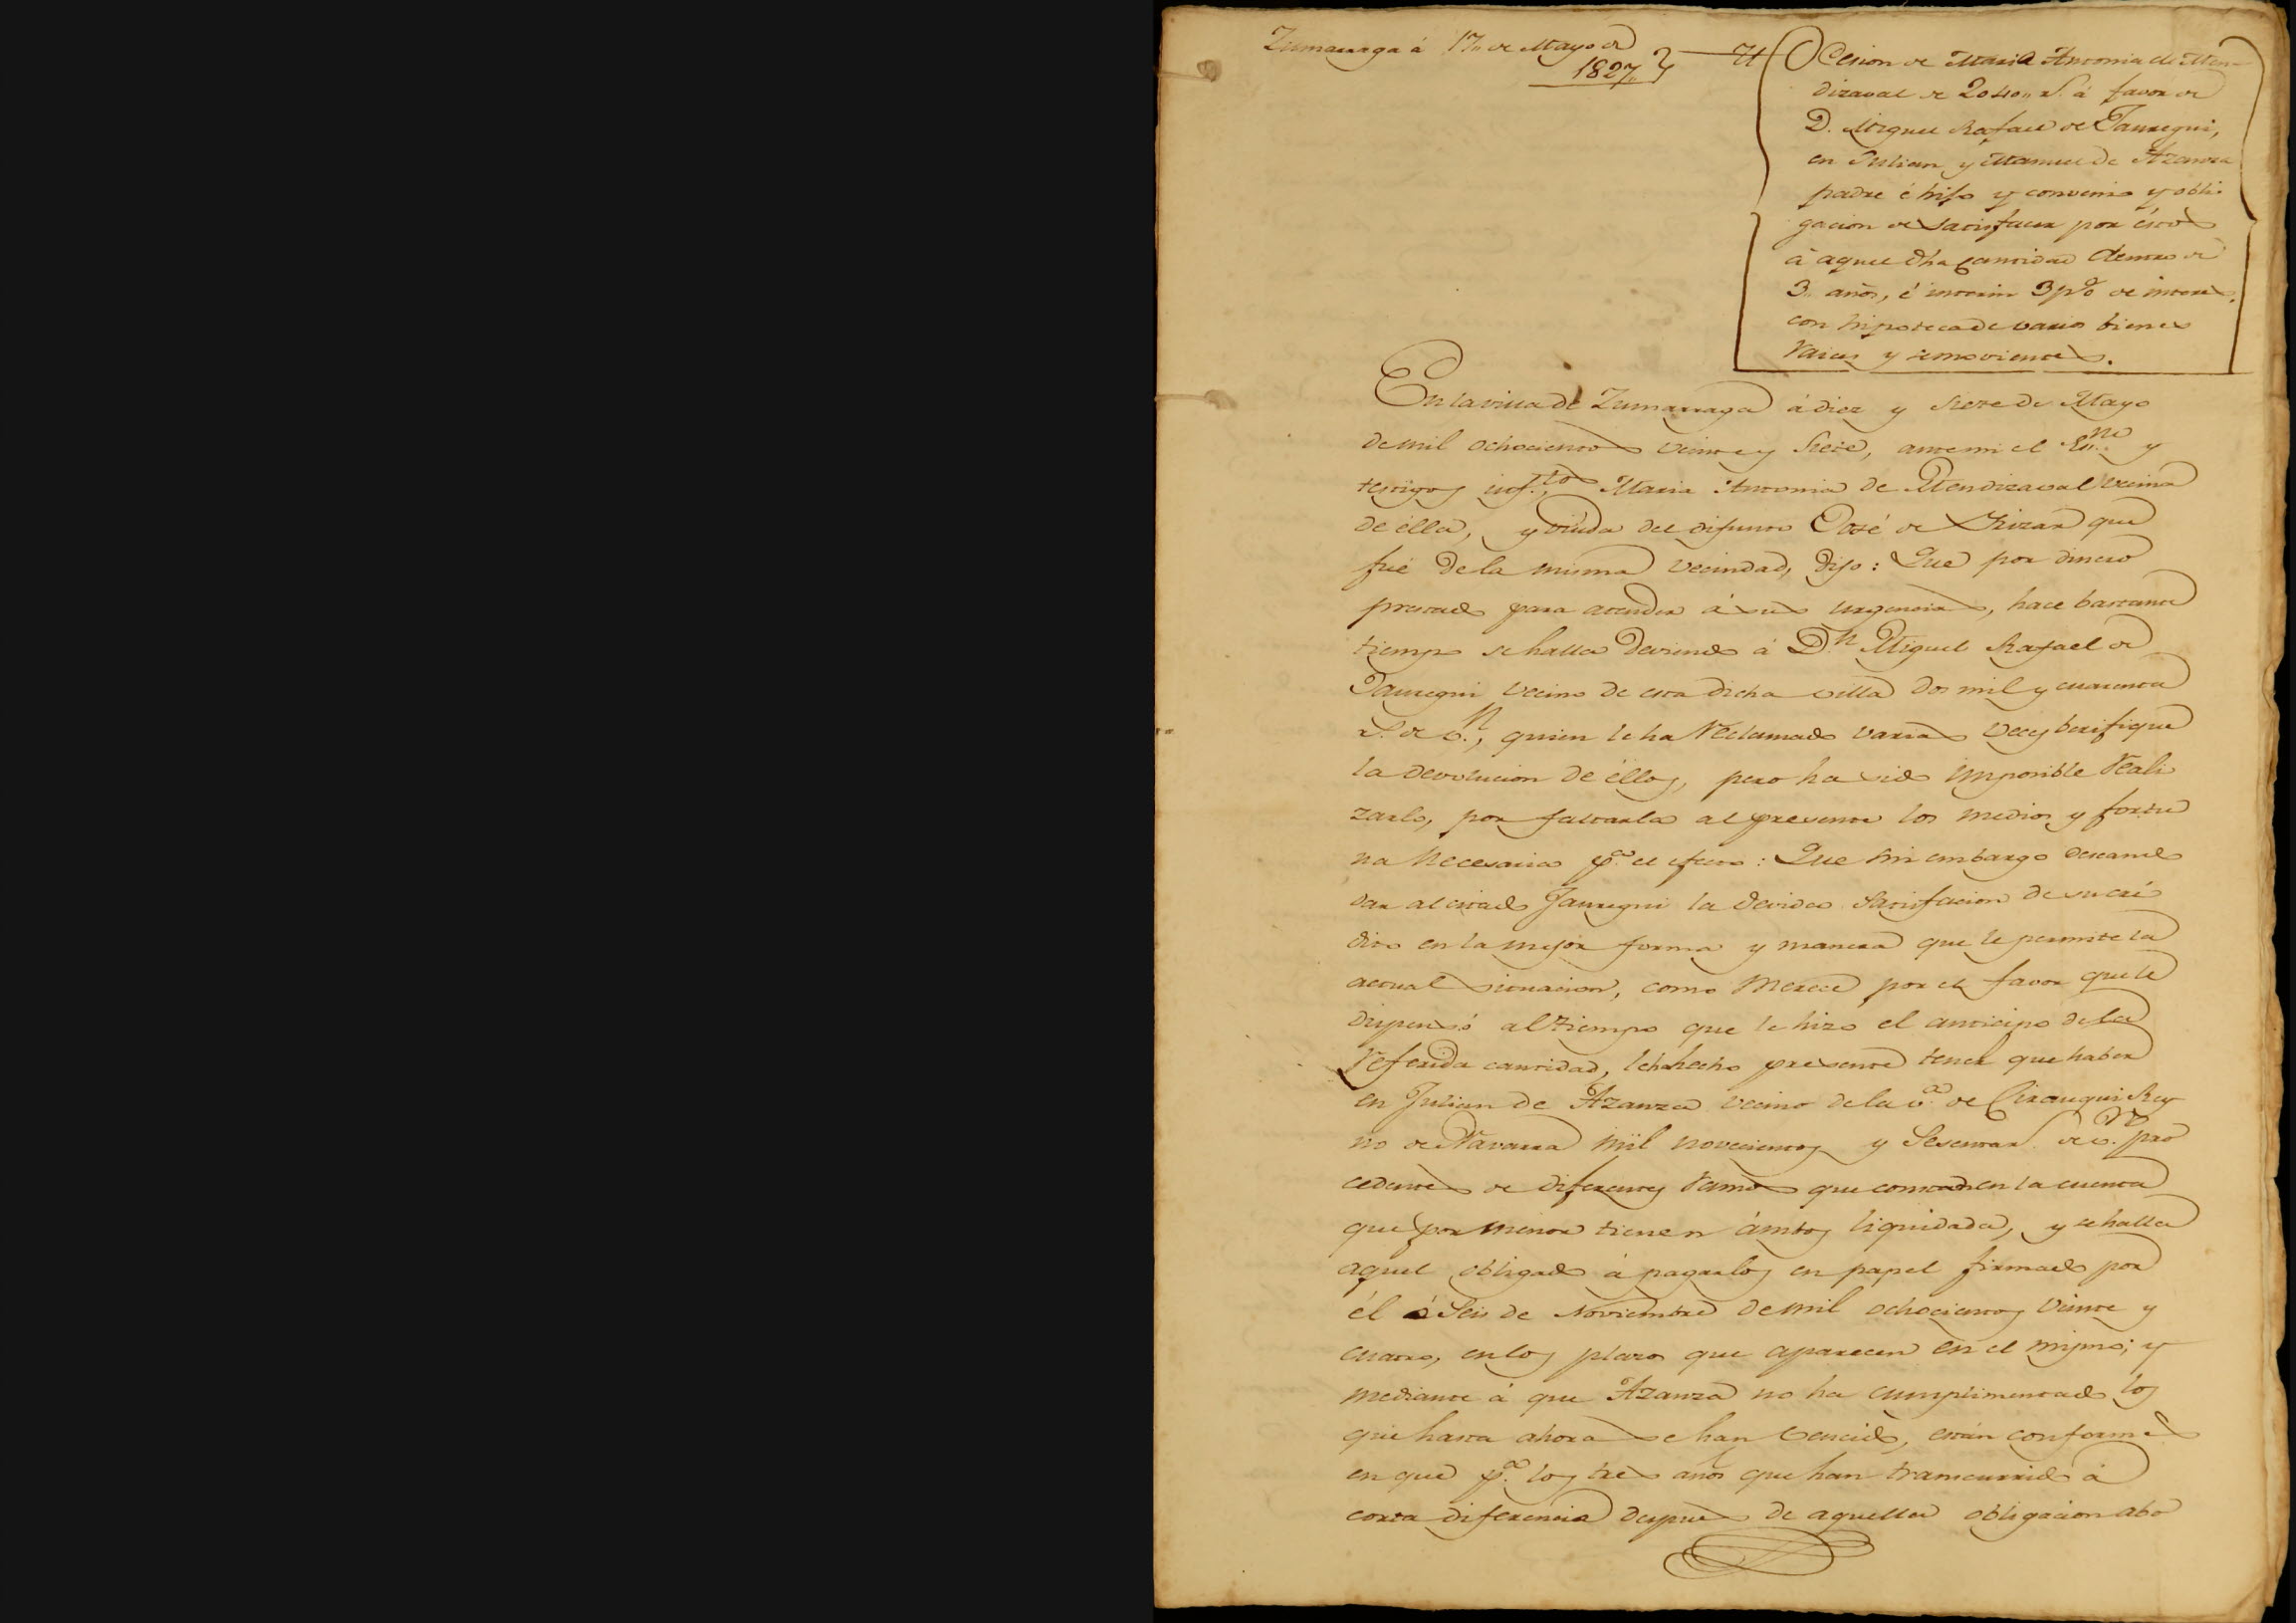 Zumarraga á 17,, de Mayo de
1827,,
Cesion de Maria Antonia de Men-
dizaval de 2040,, r.s á favor de
D. Miguel Rafael de Jauregui,
en Julian y Manuel de Azanza
padre é hijo y convenio y obli
gacion de satisfacer por éstos
á aquel dha cantidad dentro de
3,, años, é interin 3 p% de interes,
con hipoteca de varios bienes
raices y semovientes.
En la villa de Zumarraga á diez y siete de Mayo
de mil ochocientos veinte y siete, ante mi el Es.no y
testigos inf.tos Maria Antonia de Mendizaval vecina
de élla, y viuda del difunto José de Lizar que
fué de la misma vecindad, dijo: Que por dinero
prestado para atender á sus urgencias, hace bastante
tiempo se halla deviendo á D.n Miguel Rafael de
Jauregui vecino de esta dicha villa dos mil y cuarenta
r.s de v.n, quien le ha reclamado varias veces berifique
la devolucion de éllos, pero ha sido imposible reali
zarlo, por faltarla al presente los medios y fortu
na necesaria p.a el efecto: Que sin embargo deseando
dar al citado Jauregui la devida satisfacion de su cré
dito en la mejor forma y manera que le permite la
actual situacion, como merece por el favor que le
dispensó al tiempo que le hizo el anticipo de la
referida cantidad, le ha hecho presente tener que haber
en Julian de Azanza vecino de la v.a de Cirauqui Rey
no de Navarra mil novecientos y sesenta r.s de v.n pro
cedentes de diferentes ramos que constan en la cuenta
que por menor tienen ámbos liquidada, y se halla
aquel obligado á pagarlos en papel firmado por
él á seis de Noviembre de mil ochocientos veinte y
cuatro, en los plazos que aparecen en el mismo; y
mediante á que Azanza no ha cumplimentado los
que hasta ahora se han vencido, están conformes
en que p.a los tres años que han transcurrido á
corta diferencia despues de aquella obligacion abo